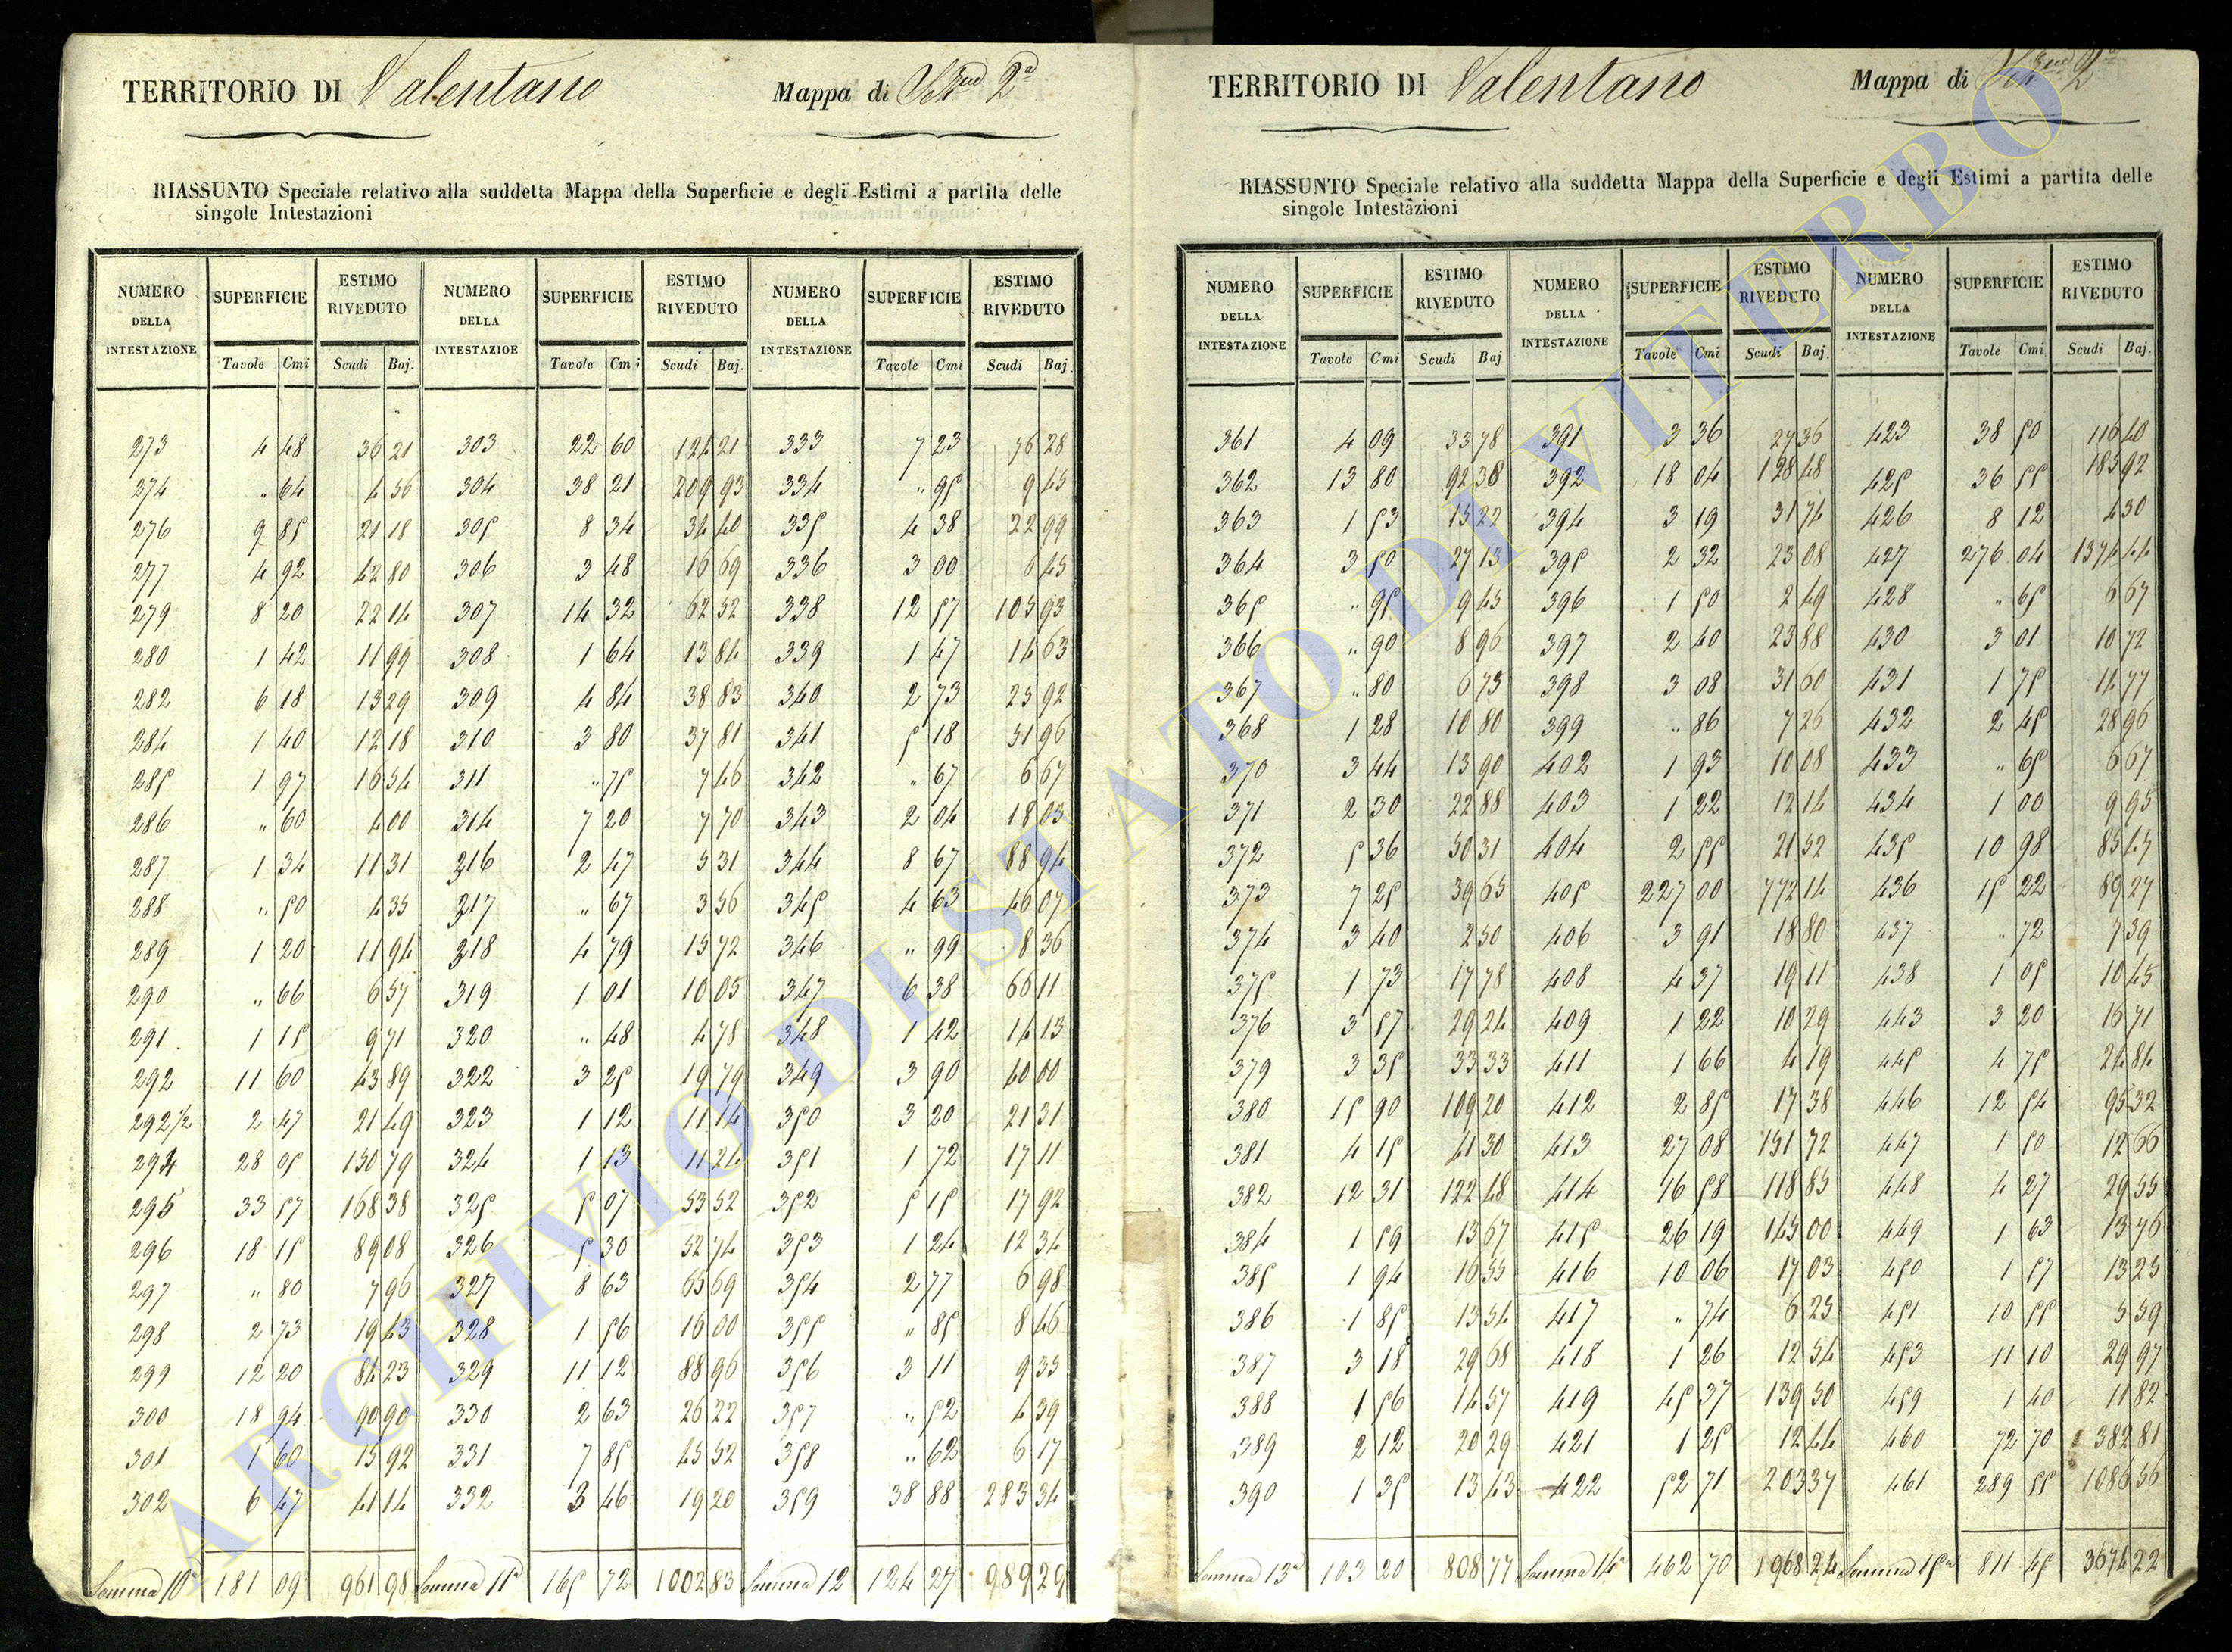 TERRITORIO DI Valentano Mappa di Sezne 2a
RIASSUNTO Speciale relativo alla suddetta Mappa della Superficie e degli Estimi a partita delle
singole Intestazioni
NUMERO DELLA INTESTAZIONE SUPERFICIE ESTIMO RIVEDUTO NUMERO DELLA INTESTAZIOE SUPERFICIE ESTIMO RIVEDUTO NUMERO DELLA INTESTAZIONE SUPERFICIE ESTIMO RIVEDUTO
Tavole Cmi Scudi Baj. Tavole Cmi Scudi Baj. Tavole Cmi Scudi Baj.
273 4 48 36 21 303 22 60 124 21 333 7 23 76 28
274 " 64 4 56 304 38 21 209 93 334 " 95 9 45
276 9 85 21 18 305 8 34 34 40 335 4 38 22 99
277 4 92 42 80 306 3 48 16 69 336 3 00 6 45
279 8 20 22 14 307 14 32 62 52 338 12 57 105 93
280 1 42 11 99 308 1 64 13 84 339 1 47 14 63
282 6 18 13 29 309 4 84 38 83 340 2 73 25 92
284 1 40 12 18 310 3 80 37 81 341 5 18 51 96
285 1 97 16 54 311 " 75 7 46 342 " 67 6 67
286 " 60 4 00 314 7 20 7 70 343 2 04 18 03
287 1 34 11 31 316 2 47 5 31 344 8 67 88 94
288 " 50 4 35 317 " 67 3 56 345 4 63 46 07
289 1 20 11 94 318 4 79 15 72 346 " 99 8 36
290 " 66 6 57 319 1 01 10 05 347 6 38 66 11
291 1 15 9 71 320 " 48 4 78 348 1 42 14 13
292 11 60 43 89 322 3 25 19 79 349 3 90 40 00
292 1/2 2 47 21 49 323 1 12 11 14 350 3 20 21 31
294 28 05 150 79 324 1 13 11 24 351 1 72 17 11
295 33 57 168 38 325 5 07 53 52 352 5 15 17 92
296 18 15 89 08 326 5 30 52 74 353 1 24 12 34
297 " 80 7 96 327 8 63 65 69 354 2 77 6 98
298 2 73 19 43 328 1 56 16 00 355 " 85 8 46
299 12 20 84 23 329 11 12 88 96 356 3 11 9 35
300 18 94 90 90 330 2 63 26 22 357 " 52 4 39
301 1 60 15 92 331 7 85 45 52 358 " 62 6 17
302 6 47 41 14 332 3 46 19 20 359 38 88 283 34
Somma 10a 181 09 961 98 Somma 11a 165 72 1002 83 Somma 12 124 27 989 29
TERRITORIO DI Valentano Mappa di Sezne 2a
RIASSUNTO Speciale relativo alla suddetta Mappa della Superficie e degli Estimi a partita delle
singole Intestazioni
NUMERO DELLA INTESTAZIONE SUPERFICIE ESTIMO RIVEDUTO NUMERO DELLA INTESTAZIONE SUPERFICIE ESTIMO RIVEDUTO NUMERO DELLA INTESTAZIONE SUPERFICIE ESTIMO RIVEDUTO
Tavole Cmi Scudi Baj Tavole Cmi Scudi Baj. Tavole Cmi Scudi Baj.
361 4 09 33 78 391 3 36 27 36 423 38 50 116 40
362 13 80 92 38 392 18 04 128 48 425 36 55 185 92
363 1 53 15 22 394 3 19 31 74 426 8 12 4 30
364 3 50 27 13 395 2 32 23 08 427 276 04 1374 44
365 " 95 9 45 396 1 50 2 49 428 " 65 6 67
366 " 90 8 96 397 2 40 23 88 430 3 01 10 72
367 " 80 6 73 398 3 08 31 60 431 1 75 14 77
368 1 28 10 80 399 " 86 7 26 432 2 45 28 96
370 3 44 13 90 402 1 93 10 08 433 " 65 6 67
371 2 30 22 88 403 1 22 12 14 434 1 00 9 95
372 5 36 50 31 404 2 55 21 52 435 10 98 85 47
373 7 25 39 65 405 227 00 772 14 436 15 22 89 27
374 3 40 2 50 406 3 91 18 80 437 " 72 7 39
375 1 73 17 78 408 4 37 19 11 438 1 05 10 45
376 3 57 29 24 409 1 22 10 29 443 3 20 16 71
379 3 35 33 33 411 1 66 4 19 445 4 75 24 84
380 15 90 109 20 412 2 85 17 38 446 12 54 95 32
381 4 15 41 30 413 27 08 151 72 447 1 50 12 66
382 12 31 122 48 414 16 58 118 85 448 4 27 29 55
384 1 59 13 67 415 26 19 145 00 449 1 63 13 76
385 1 94 16 55 416 10 06 17 03 450 1 57 13 25
386 1 85 13 54 417 " 74 6 25 451 10 55 5 59
387 3 18 29 68 418 1 26 12 54 453 11 10 29 97
388 1 56 14 57 419 45 37 139 50 459 1 40 11 82
389 2 12 20 29 421 1 25 12 44 460 72 70 382 81
390 1 35 13 43 422 52 71 203 37 461 289 55 1086 56
Somma 13a 103 20 808 77 Somma 14a 462 70 1968 24 Somma 15a 811 45 3674 22
ARCHIVIO DI STATO DI VITERBO